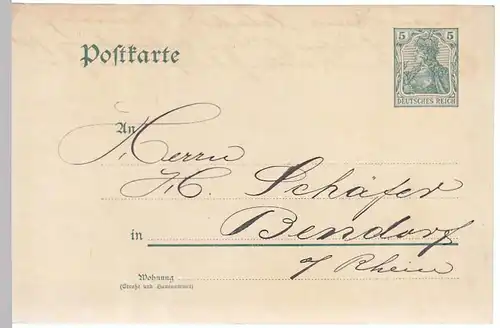 Postkarte
5 5
DEUTSCHES REICH
An Herrn
H. Schäfer
in Bendorf
a/ Rhein
Wohnung
(Straße und Hausnummer)